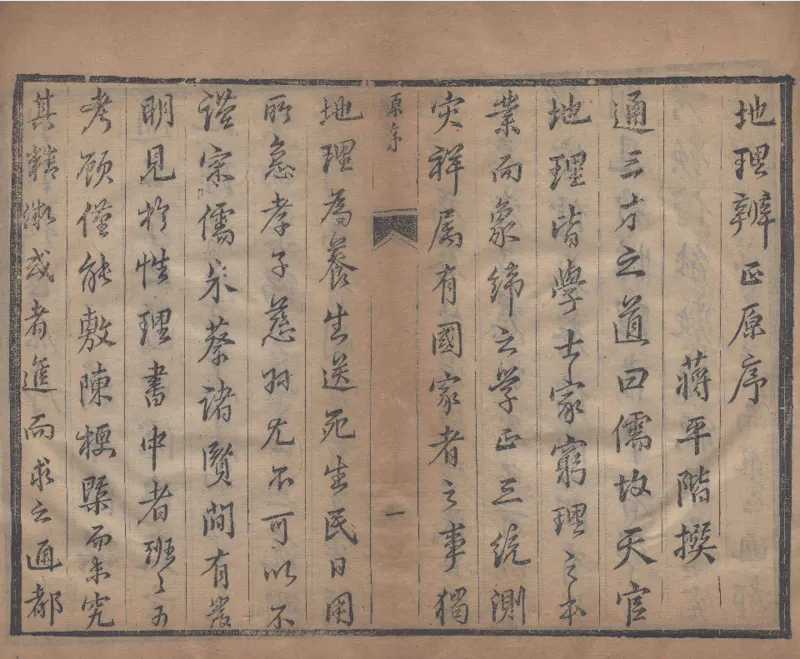 地理辨正原序
蔣平階撰
通三才之道曰儒故天官
地理皆學士家窮理之本
業而象緯之學正三統測
灾祥属有國家者之事獨
原序
一
地理為養生送死生民日用
所急孝子慈孫尤不可以不
謹宗儒朱蔡諸賢間有發
明見於性理書中者班〻可
考顧僅能敷陳梗槩而未究
其精微或者進而求之通都